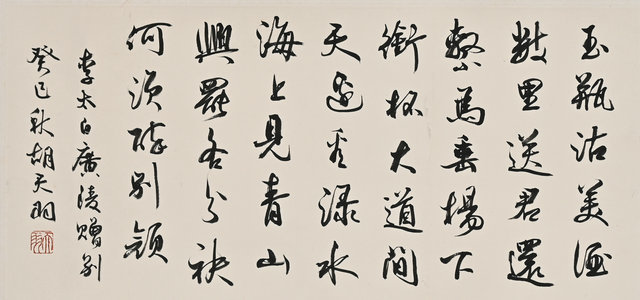 玉瓶沽美酒
數里送君還
繫馬垂楊下
銜杯大道間
天邊看淥水
海上見青山
興罷各分袂
何須醉別顏
李太白廣陵贈別
癸巳秋胡天羽